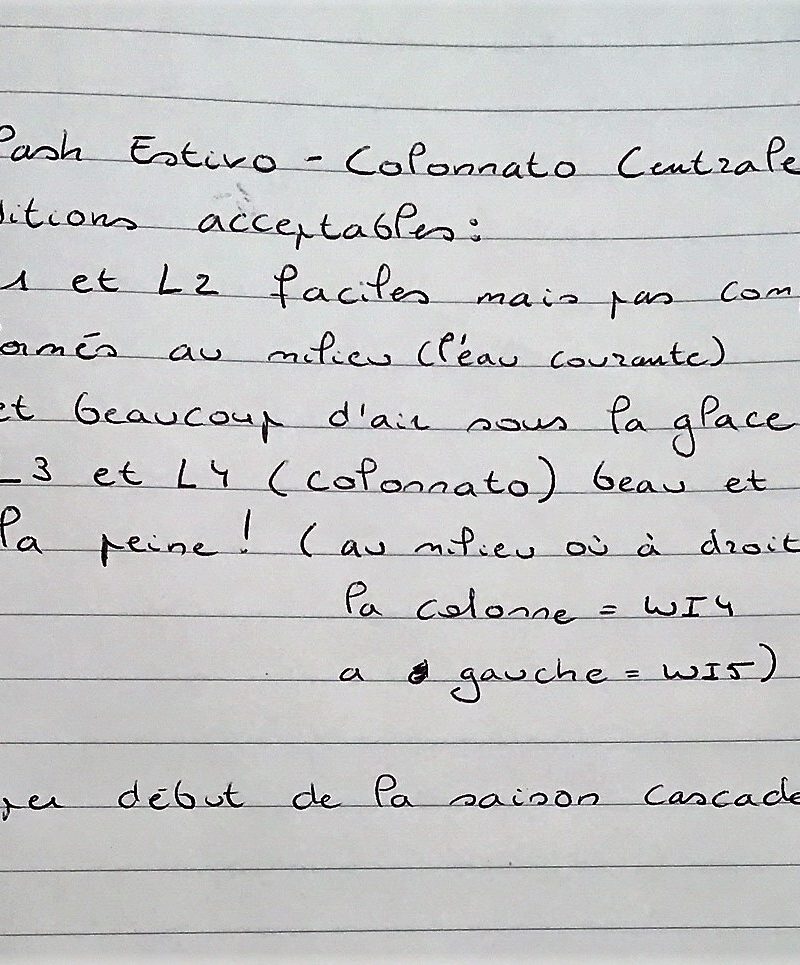 Pash Estivo - Colonnato Centrale
ditions acceptables:
1 et L2 faciles mais pas com
ormés au milieu (l'eau courante)
et beaucoup d'air sous la glace
L3 et L4 (colonnato) beau et
la peine! (au milieu où à droit
la colonne = WI4
a gauche = WI5)
per début de la saison cascade